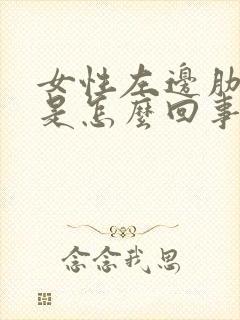 女性左邊肋
是怎麼回事
念念我思